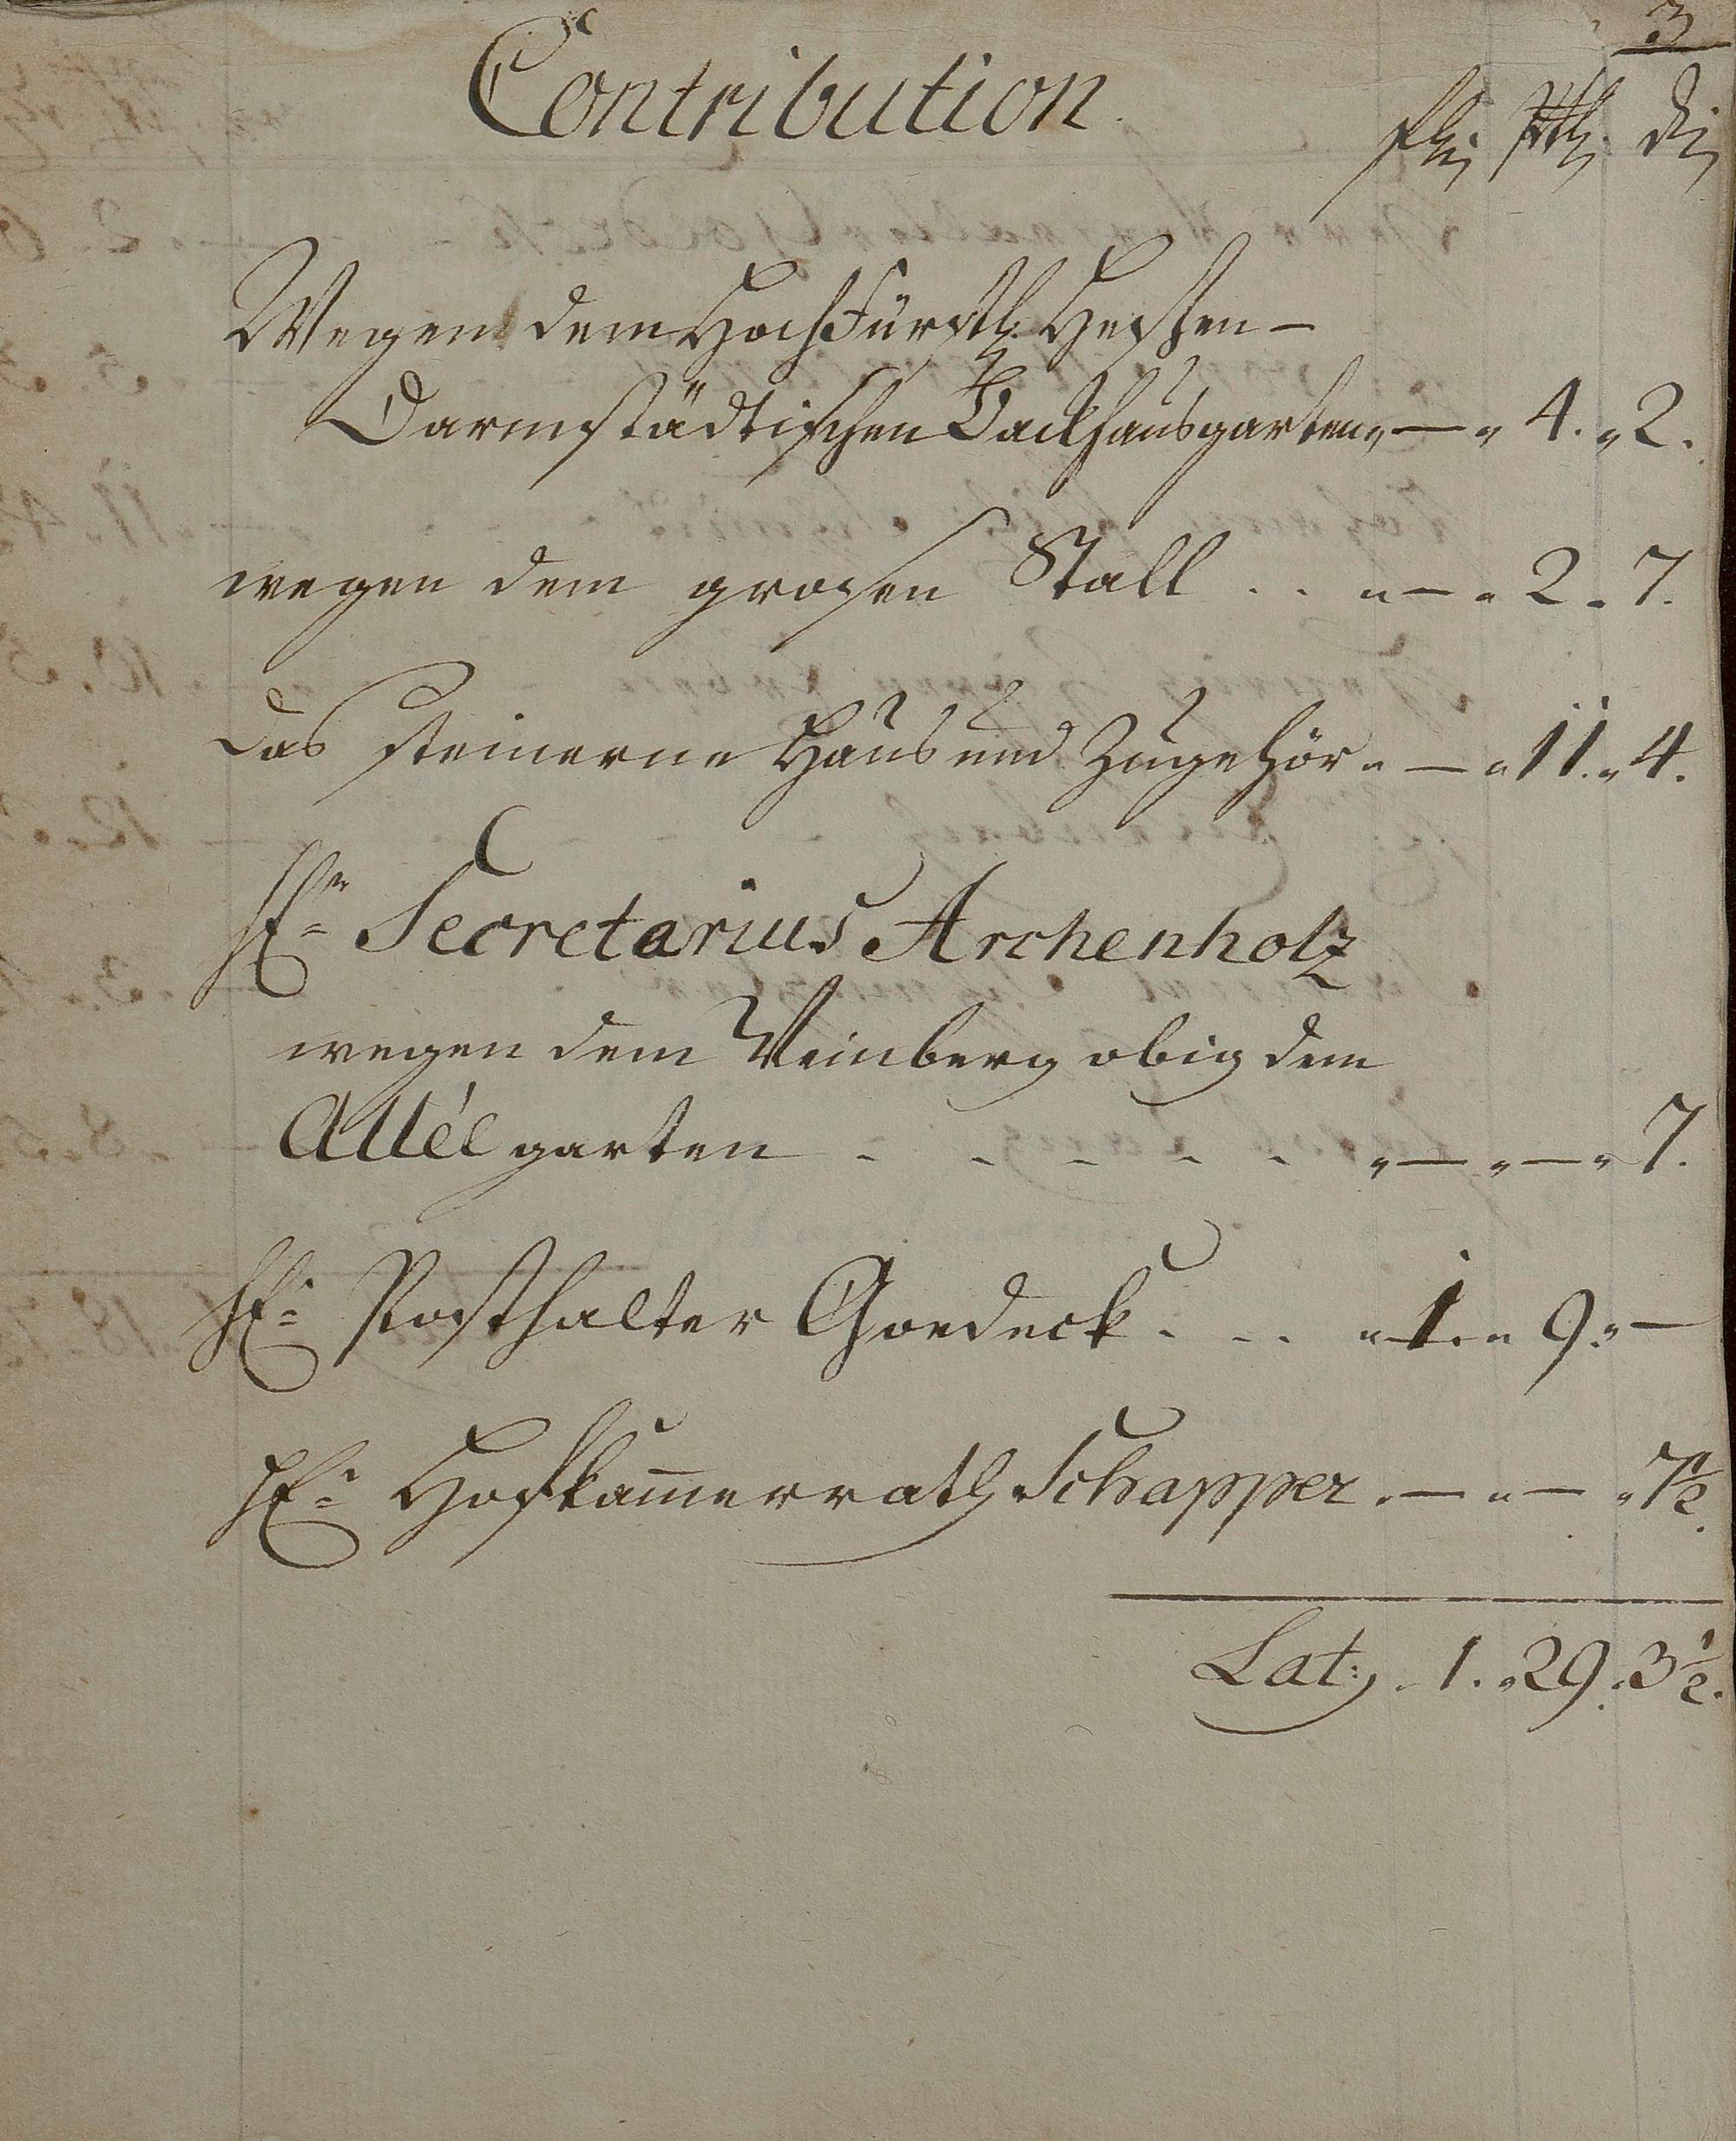 3
Contribution.
Wegen dem HochFürstl. Hessen-
Darmstädtischen Backhausgarten „ — „ 4. „ 2.
wegen dem grosen Stall . . „ — „ 2 „ 7.
das steinerne Haus und Zugehör „ — „ 11. „ 4.
Hr. Secretarius Archenholz
wegen dem Weinberg obig dem
Alléegarten - - - - - „ — „ — „ 7.
Hr. Posthalter Goedeck . . . „ 1. „ 9. „ —
Hr. Hofkam̅errath Schapper. — „ — „ 7½.
Lat: „ 1. „ 29. „ 3½.